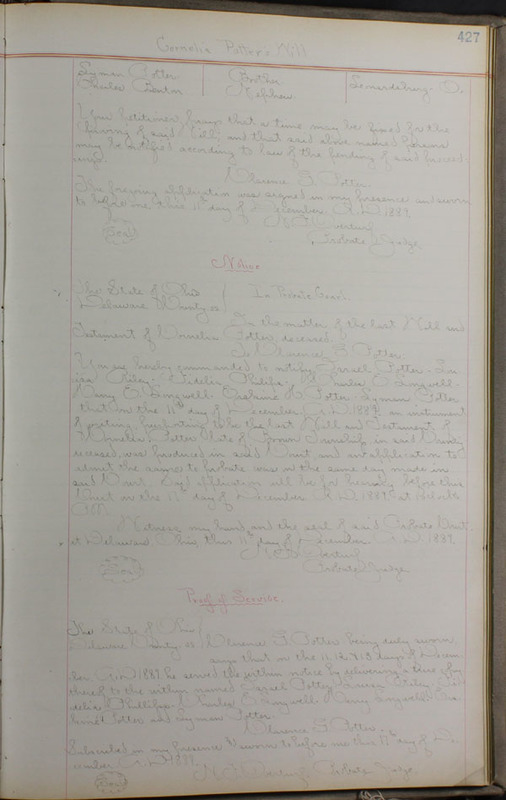 427
Cornelia Potter's Will
Lyman Potter Brother Leonardsburg O.
Charles Nephew
Your petitioner prays that a time may be fixed for the
proving of said Will, and that said above named persons
may be notified according to law of the pending of said proceed-
ings.
Clarence F. Potter.
The foregoing application was signed in my presence and sworn
to before me, this 11th day of December, A.D. 1889.
Seal
Probate Judge
Notice
The State of Ohio
Delaware County ss In Probate Court.
In the matter of the last Will and
Testament of Cornelia Potter, deceased.
To Clarence F. Potter.
You are hereby commanded to notify Israel Potter, Lou-
isa Riley, Fidelia Phillips, Charles E. Longwell.
Mary E. Longwell, Potter, Lyman Potter
that on the 11th day of December A.D. 1889, an instrument
of writing, purporting to be the last Will and Testament of
Cornelia Potter late of Brown Township in said County,
deceased, was produced in said Court, and an application to
admit the same to probate was on the same day made in
said Court. Said application will be for hearing before this
Court on the day of December A.D. 1889, at o'clock
Witness my hand and the seal of said Probate Court
at Delaware Ohio, this 11th day of December A.D. 1889.
Seal
Probate Judge
Proof of Service.
The State of Ohio
Delaware County ss Clarence F. Potter, being duly sworn
says that on the 11, 12 & 13 days of Decem-
ber A.D. 1889 he served the within notice by delivering a true copy
thereof to the within named Israel Potter, Louisa Riley, Fi-
delia Phillips, Charles E. Longwell, Mary Longwell,
Potter and Lyman Potter.
Clarence F. Potter.
Subscribed in my presence & sworn to before me this day of De-
cember A.D. 1889.
Seal
Probate Judge